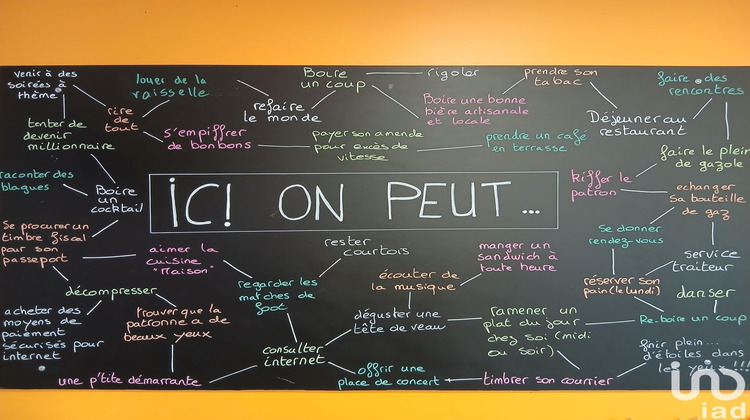 venir à des
soirées à
thème
louer de la
vaisselle
Boire
un coup
rigoler
prendre son
tabac
faire des
rencontres
rire
de
tout
refaire
le monde
Boire une bonne
bière artisanale
et locale
Déjeuner au
restaurant
tenter de
devenir
millionnaire
s'empiffrer
de bonbons
payer son amende
pour excès de
vitesse
prendre un café
en terrasse
faire le plein
de gazole
raconter des
blagues
Boire
un
cocktail
kiffer le
patron
echanger
sa bouteille
de gaz
ICI ON PEUT...
se procurer un
timbre fiscal
pour son
passeport
aimer la
cuisine
"maison"
rester
courtois
manger un
sandwich à
toute heure
Se donner
rendez-vous
service
traiteur
décompresser
regarder les
matches de
foot
écouter de
la musique
réserver son
pain (le lundi)
danser
acheter des
moyens de
paiement
sécurisés pour
internet
trouver que la
patronne a de
beaux yeux
déguster une
tête de veau
ramener un
plat du jour
chez soi (midi
ou soir)
Re-boire un coup
consulter
internet
finir plein...
d'étoiles dans
les yeux !!!
une p'tite démarrante
offrir une
place de concert
timbrer son courrier
iad